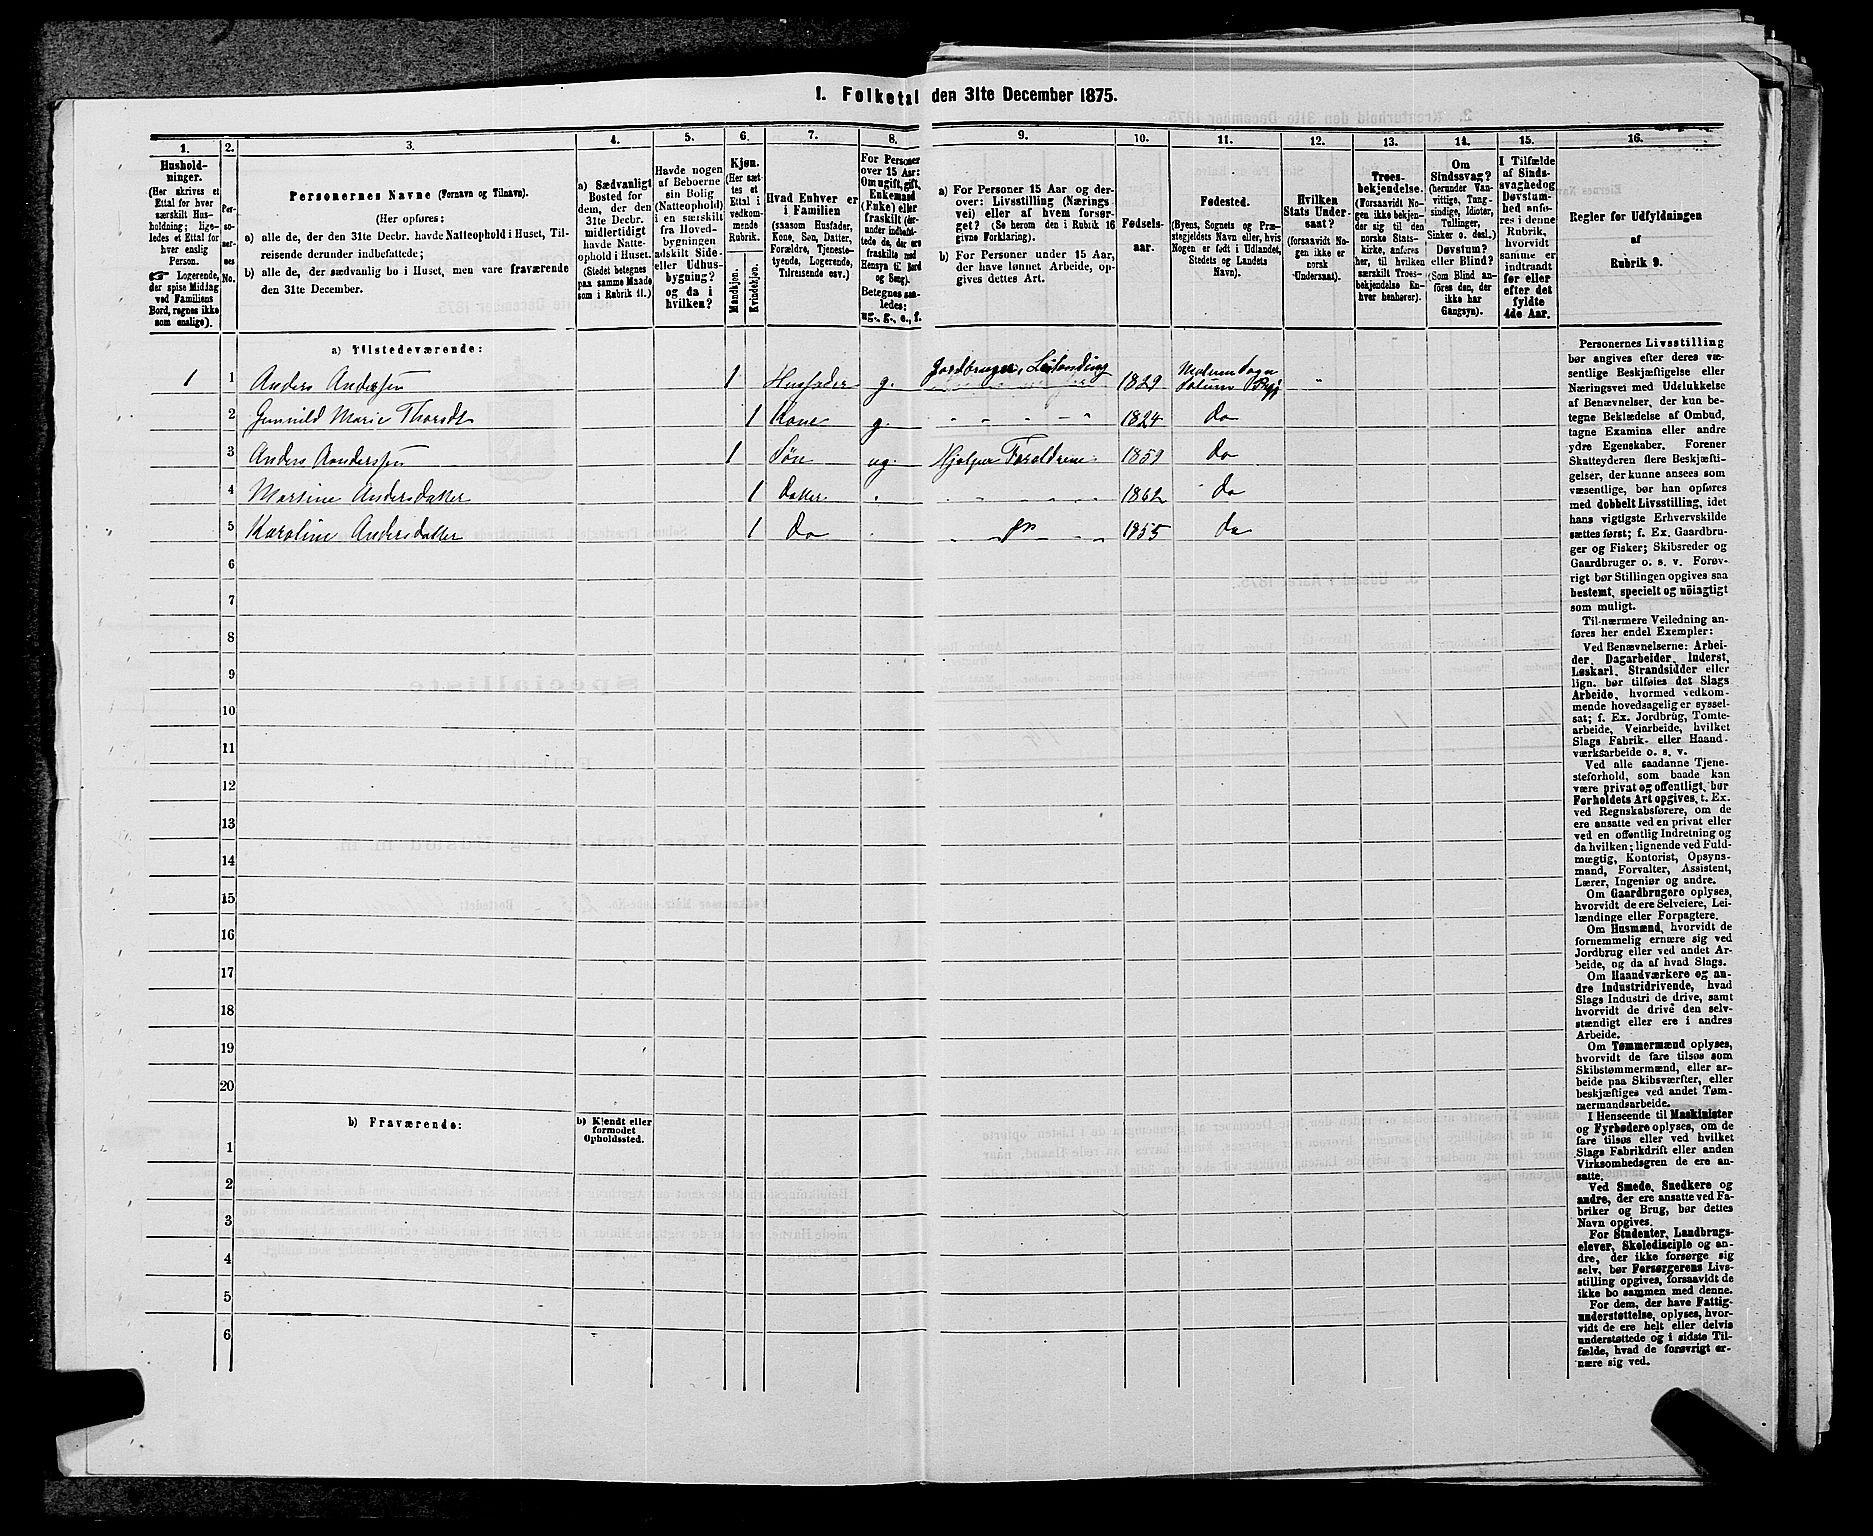 1. Folketal den 31te December 1875.
1. 2. 3. 4. 5. 6. 7. 8. 9. 10. 11. 12. 13. 14. 15. 16.
Hushold-
ninger.
(Her skrives et
Ettal for hver
særskilt Hus-
holdning; lige-
ledes et Ettal for
hver enslig
Person.
☛ Logerende,
der spise Middag
ved Familiens
Bord, regnes ikke
som enslige).
Per-
so-
ner-
nes
No.
Personernes Navne (Fornavn og Tilnavn).
(Her opføres:
a) alle de, der den 31te Decbr. havde Natteophold i Huset, Til-
reisende derunder indbefattede;
b) alle de, der sædvanlig bo i Huset, men vare fraværende
den 31te December.
a) Sædvanligt
Bosted for
dem, der den
31te Decbr.
midlertidigt
havde Natte-
ophold i Huset.
(Stedet betegnes
paa samme Maade
som i Rubrik 11.)
Havde nogen
af Beboerne
sin Bolig
(Natteophold)
i en særskilt
fra Hoved-
bygningen
adskilt Side-
eller Udhus-
bygning?
og da i
hvilken?
Kjøn.
(Her sæt-
tes et
Ettal i
vedkom-
mende
Rubrik.
Mandkjøn.
Kvindekjøn.
Hvad Enhver er
i Familien
(saasom Husfader,
Kone, Søn, Datter,
Forældre, Tjeneste-
tyende, Logerende,
Tilreisende osv.)
For Personer
over 15 Aar:
Om ugift, gift,
Enkemand
(Enke) eller
fraskilt (her-
under indbefat-
tede de, der ere
fraskilte med
Hensyn til Bord
og Seng).
Betegnes saa-
ledes:
ug., g., e., f.
a) For Personer 15 Aar og der-
over: Livsstilling (Nærings
vei) eller af hvem forsør-
get? (Se herom den i Rubrik 16
givne Forklaring).
b) For Personer under 15 Aar,
der have lønnet Arbeide, op-
gives dettes Art.
Fødsels-
aar.
Fødested.
(Byens, Sognets og Præ-
stegjeldets Navn eller, hvis
Nogen er født i Udlandet,
Stedets og Landets
Navn).
Hvilken
Stats Under-
saat?
(forsaavidt No-
gen ikke er
norsk
Undersaat).
Troes-
bekjendelse.
(Forsaavidt No-
gen ikke bekjen-
der sig til den
norske Stats-
kirke, anføres
her, til hvilken
særskilt Troes-
bekjendelse En-
hver henhører).
Om
Sindssvag?
(herunder Van-
vittige, Tung-
sindige, Idioter,
Tullinger,
Sinker o. desl.)
Døvstum?
eller Blind?
(Som Blind an-
føres den, der
ikke har
Gangsyn).
I Tilfælde
af Sinds-
svaghed og
Døvstum-
hed anfø-
res i denne
Rubrik,
hvorvidt
samme er
indtraadt
før eller
efter det
fyldte
4de Aar.
Regler for Udfyldningen
af
Rubrik 9.
a) Tilstedeværende:
1 1 Anders Andersen 1 Husfader g. Jordbruger, Leilænding 1829 Melum Sogn
Solum Prgj "
2 Gunnild Marie Thorsdt 1 Kone g. " - " - " 1824 Do
3 Anders Aanderssen 1 Søn ug. Hjelper Foraldrene 1859 Do
4 Martine Andersdatter 1 Datter " - - - - 1862 Do
5 Karoline Andersdatter 1 Do 1855 Do
6
7
8
9
10
11
12
13
14
15
16
17
18
19
20
b) Fraværende:
b) Kjendt eller
formodet
Opholdssted.
1
2
3
4
5
6
Personernes Livsstilling
bør angives efter deres væ-
sentlige Beskjæftigelse eller
Næringsvei med Udelukkelse
af Benævnelser, der kun be-
tegne Beklædelse af Ombud,
tagne Examina eller andre
ydre Egenskaber. Forener
Skatteyderen flere Beskjæfti-
gelser, der kunne ansees som
væsentlige, bør han opføres
med dobbelt Livsstilling, idet
hans vigtigste Erhvervskilde
sættes først; f. Ex. Gaardbru-
ger og Fisker; Skibsreder og
Gaardbruger o. s. v. Forøv-
rigt bør Stillingen opgives saa
bestemt, specielt og nöiagtigt
som muligt.
Til nærmere Veiledning an-
føres her endel Exempler:
Ved Benævnelserne: Arbei-
der, Dagarbeider, Inderst,
Løskarl, Strandsidder eller
lign. bør tilføies det Slags
Arbeide, hvormed vedkom-
mende hovedsagelig er syssel-
sat; f. Ex. Jordbrug, Tomte-
arbeide, Veiarbeide, hvilket
Slags Fabrik- eller Haand-
værksarbeide o. s. v.
Ved alle saadanne Tjene-
steforhold, som baade kan
være privat og offentligt, bør
Forholdets Art opgives, t. Ex.
ved Regnskabsførere, om de
ere ansatte ved en privat eller
ved en offentlig Indretning og
da hvilken; lignende ved Fuld-
mægtig, Kontorist, Opsyns-
mand, Forvalter, Assistent,
Lærer, Ingeniør og andre.
Om Gaardbrugere oplyses,
hvorvidt de ere Selveiere, Lei-
lændinge eller Forpagtere.
Om Husmænd, hvorvidt de
fornemmelig ernære sig ved
Jordbrug eller ved andet Ar-
beide, og da af hvad Slags.
Om Haandværkere og an-
dre Industridrivende, hvad
Slags Industri de drive, samt
hvorvidt de drive den selv-
stændigt eller ere i andres
Arbeide.
Om Tømmermænd oplyses,
hvorvidt de fare tilsøs som
Skibstømmermænd, eller ar-
beide paa Skibsværfter, eller
beskjæftiges ved andet Tøm-
mermandsarbeide.
I Henseende til Maskinister
og Fyrbødere oplyses, om de
fare tilsøs eller ved hvilket
Slags Fabrikdrift eller anden
Virksomhedsgren de ere an-
satte.
Ved Smede, Snedkere og
andre, der ere ansatte ved Fa-
briker og Brug, bør dettes
Navn opgives.
For Studenter, Landbrugs-
elever, Skoledisciple og an-
dre, der ikke forsørge sig
selv, bør Forsørgerens Livs-
stilling opgives, forsaavidt de
ikke bo sammen med denne.
For dem, der have Fattig-
understøttelse, oplyses, hvor-
vidt de ere helt eller delvis
understøttede og i sidste Til-
fælde, hvad de forøvrigt er-
nære sig ved.